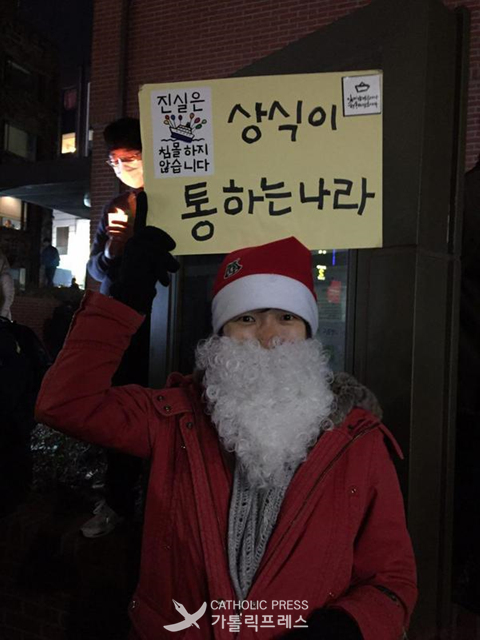 진실은
침몰하지
않습니다
상식이
통하는나라
CATHOLIC PRESS
가톨릭프레스